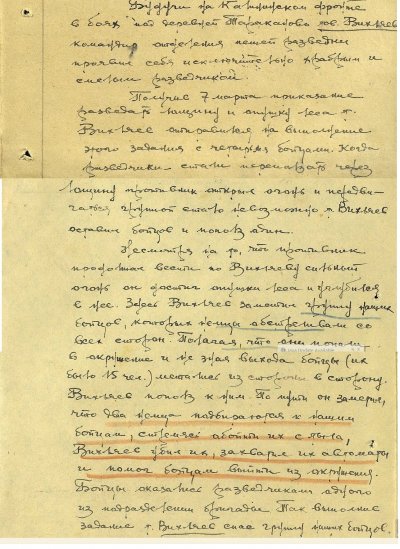 Будучи на Калининском фронте
в боях под деревней Таракановo тов. Вихляев
командир отделения пешей разведки
проявил себя исключительно храбрым и
смелым разведчиком.
Получив 7 марта приказание
разведать лощину и опушку леса т.
Вихляев отправился на выполнение
этого задания с четырьмя бойцами. Когда
разведчики стали переползать через
лощину противник открыл огонь и передви-
гаться группой стало невозможно, т. Вихляев
оставил бойцов и пополз один.
Несмотря на то, что противник
продолжал вести по Вихляеву сильный
огонь он достиг опушки леса и углубился
в лес. Здесь Вихляев заметил группу наших
бойцов, которых немцы обстреливали со
всех сторон. Полагая, что они попали
в окружение и не зная выхода бойцы (их
было 15 чел.) метались из стороны в сторону.
Вихляев пополз к ним. По пути он замечает,
что два немца подбираются к нашим
бойцам, стремясь обойти их с тыла,
Вихляев убил их, захватил их автоматы
и помог бойцам выйти из окружения.
Бойцы оказались разведчиками одного
из подразделений бригады. Так выполняя
задание т. Вихляев спас группу наших бойцов.